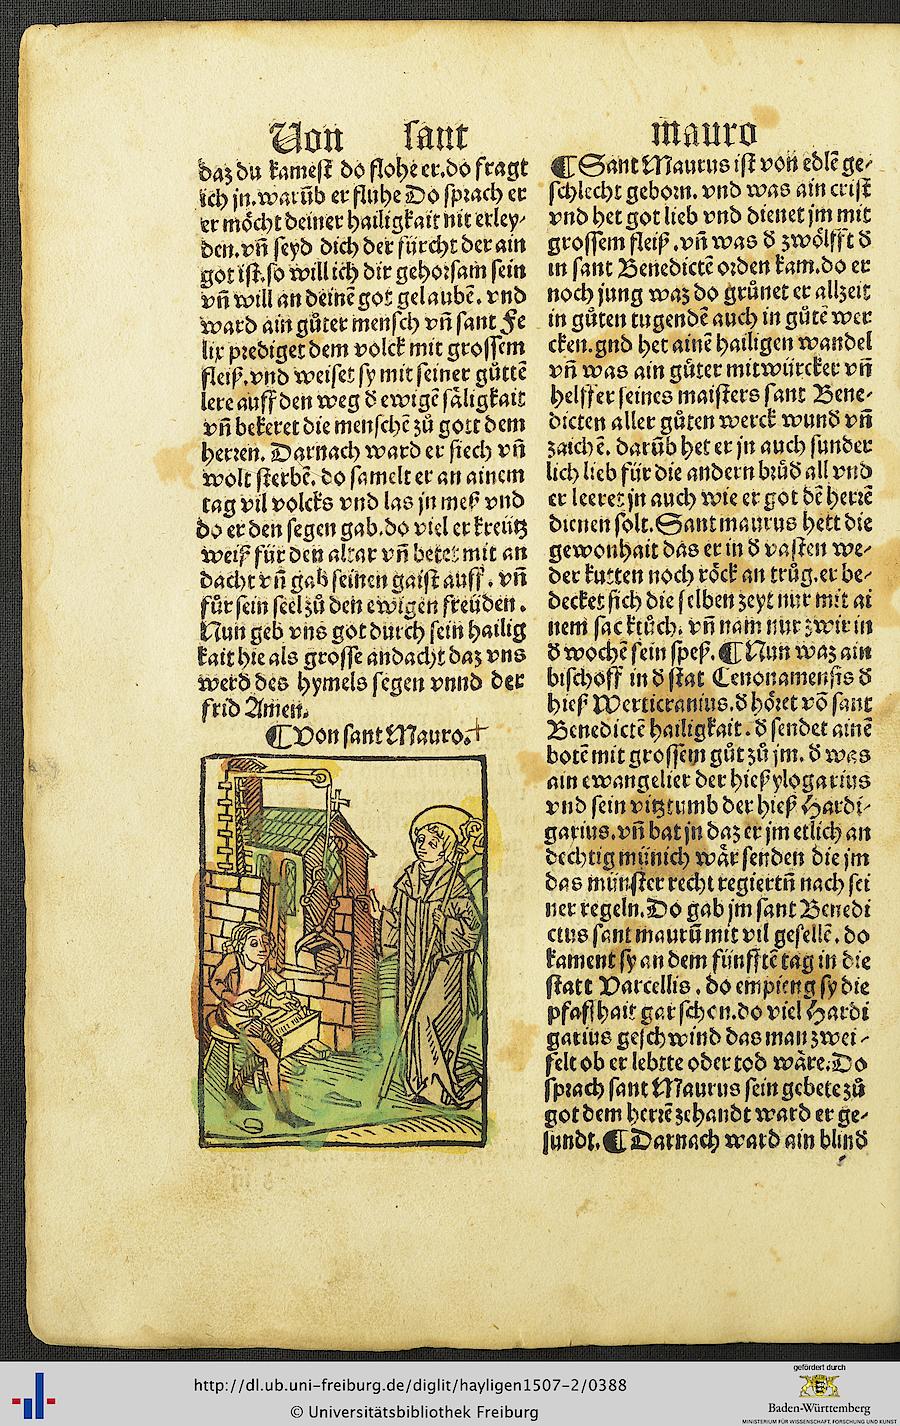 Von sant mauro
daz du kamest do flohe er. do fragt
ich jn. warūb er fluhe Do sprach er
er möcht deiner hailigkait nit erley⸗
den. vñ seyd dich der fürcht der ain
got ist. so will ich dir gehorsam sein
vñ will an deinē got gelaubē. vnd
ward ain gůter mensch vñ sant Fe
lix prediget dem volck mit grossem
fleiß. vnd weiset sy mit seiner güttē
lere auff den weg d ewigē säligkait
vñ bekeret die menschē zů gott dem
herren. Darnach ward er siech vñ
wolt sterbē. do samelt er an ainem
tag vil volcks vnd las jn meß vnd
do er den segen gab. do viel er kreütz
weiß für den altar vñ betet mit an
dacht vñ gab seinen gaist auff. vñ
fůr sein seel zů den ewigen freüden.
Nun geb vns got durch sein hailig
kait hie als grosse andacht daz vns
werd des hymels segen vnnd der
frid Amen.
¶ Von sant Mauro.
¶ Sant Maurus ist von edlē ge⸗
schlecht geborn. vnd was ain crist
vnd het got lieb vnd dienet jm mit
grossem fleiß. vñ was d zwölfft d
in sant Benedictē orden kam. do er
noch jung waz do grůnet er allzeit
in gůten tugendē auch in gůtē wer
cken. gnd het ainē hailigen wandel
vñ was ain gůter mitwürcker vñ
helffer seines maisters sant Bene⸗
dicten aller gůten werck wund vñ
zaichē. darūb het er jn auch sunder
lich lieb für die andern brůd all vnd
er leeret jn auch wie er got dē herrē
dienen solt. Sant maurus hett die
gewonhait das er in d vasten we⸗
der kutten noch röck an trůg. er be⸗
decket sich die selben zeyt nur mit ai
nem sack tůch. vñ nam nur zwir in
d wochē sein speß. ¶ Nun waz ain
bischoff in d stat Cenonamensis d
hieß Werticranius. d höret võ sant
Benedictē hailigkait. d sendet ainē
botē mit grossem gůt zů jm. d was
ain ewangelier der hieß ylogarius
vnd sein vitztumb der hieß Hardi⸗
garius. vñ bat jn daz er jm etlich an
dechtig münich wär senden die jm
das münster recht regiertñ nach sei
ner regeln. Do gab jm sant Benedi
ctus sant maurū mit vil gesellē. do
kament sy an dem fünfftē tag in die
statt Varcellis. do empieng sy die
pfaffhait gar schon. do viel Hardi
garius geschwind das man zwei⸗
felt ob er lebtte oder tod wäre. Do
sprach sant Maurus sein gebete zů
got dem herrē zehandt ward er ge⸗
sundt. ¶ Darnach ward ain blind
http://dl.ub.uni-freiburg.de/diglit/hayligen1507-2/0388
© Universitätsbibliothek Freiburg
gefördert durch
Baden-Württemberg
MINISTERIUM FÜR WISSENSCHAFT, FORSCHUNG UND KUNST